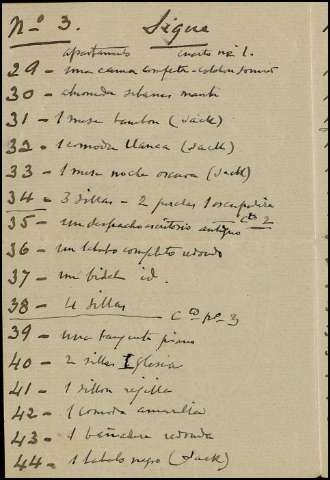 Nº 3. Sigue
apartamento cuarto nº 1.
29 - una cama completa - colchon somier
30 - almoada sabanas manta
31 - 1 mesa (Jack)
32 - 1 comoda blanca (Jack)
33 - 1 mesa noche oscura (Jack)
34 - 3 sillas - 2 1 escupidera
35 - un despacho escritorio antiguo cto 2
36 - un lababo completo redondo
37 - un bidet id.
38 - 4 sillas
cto nº 3
39 - una banqueta piano
40 - 2 sillas Iglesia
41 - 1 sillon rejilla
42 - 1 comoda amarilla
43 - 1 bañadera redonda
44 - 1 lababo negro (Jack)